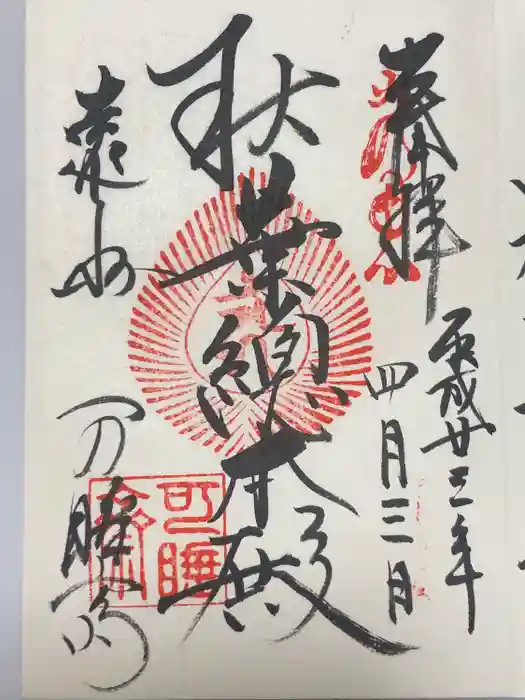 奉拝
平成廿三年
四月三日
秋葉總本殿
遠州
可睡齋
可睡齋